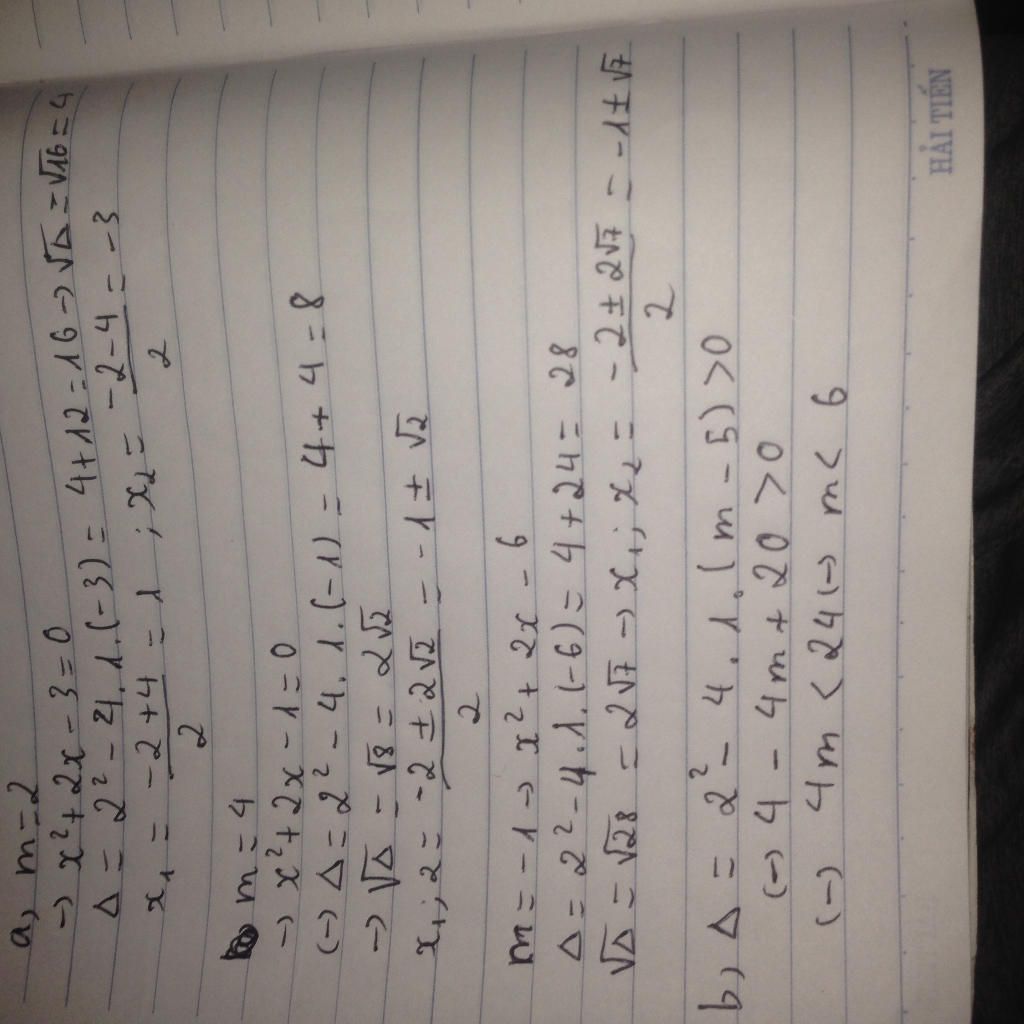 a, m = 2
→ x² + 2x - 3 = 0
Δ = 2² - 4.1.(-3) = 4 + 12 = 16 → √Δ = √16 = 4
x₁ = (-2 + 4)/2 = 1 ; x₂ = (-2 - 4)/2 = -3
m = 4
→ x² + 2x - 1 = 0
(→ Δ = 2² - 4.1.(-1) = 4 + 4 = 8
→ √Δ = √8 = 2√2
x₁; 2 = (-2 ± 2√2)/2 = -1 ± √2
m = -1 → x² + 2x - 6
Δ = 2² - 4.1.(-6) = 4 + 24 = 28
√Δ = √28 = 2√7 → x₁; x₂ = (-2 ± 2√7)/2 = -1 ± √7
b, Δ = 2² - 4.1.(m - 5) > 0
(→ 4 - 4m + 20 > 0
(→ 4m < 24 (→ m < 6
HẢI TIẾN